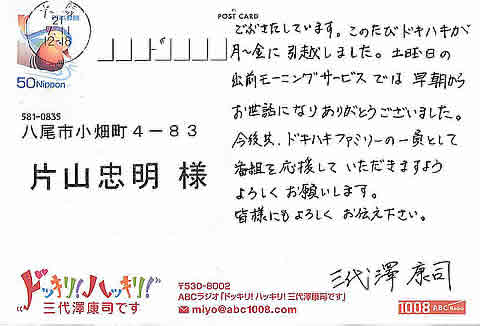 POST CARD
21
12-18
50 Nippon
ごぶさたしています。このたびドキハキが
月～金に引越しました。土曜日の
出前モーニングサービスでは早朝から
お世話になりありがとうございました。
今後共、ドキハキファミリーの一員として
番組を応援していただきますよう
よろしくお願いします。
皆様にもよろしくお伝え下さい。
三代澤 康司
581-0835
八尾市小畑町4-83
片山忠明 様
ドッキリ!ハッキリ!
三代澤康司です
〒530-8002
ABCラジオ「ドッキリ!ハッキリ!三代澤康司です」
miyo@abc1008.com
1008 ABC Radio